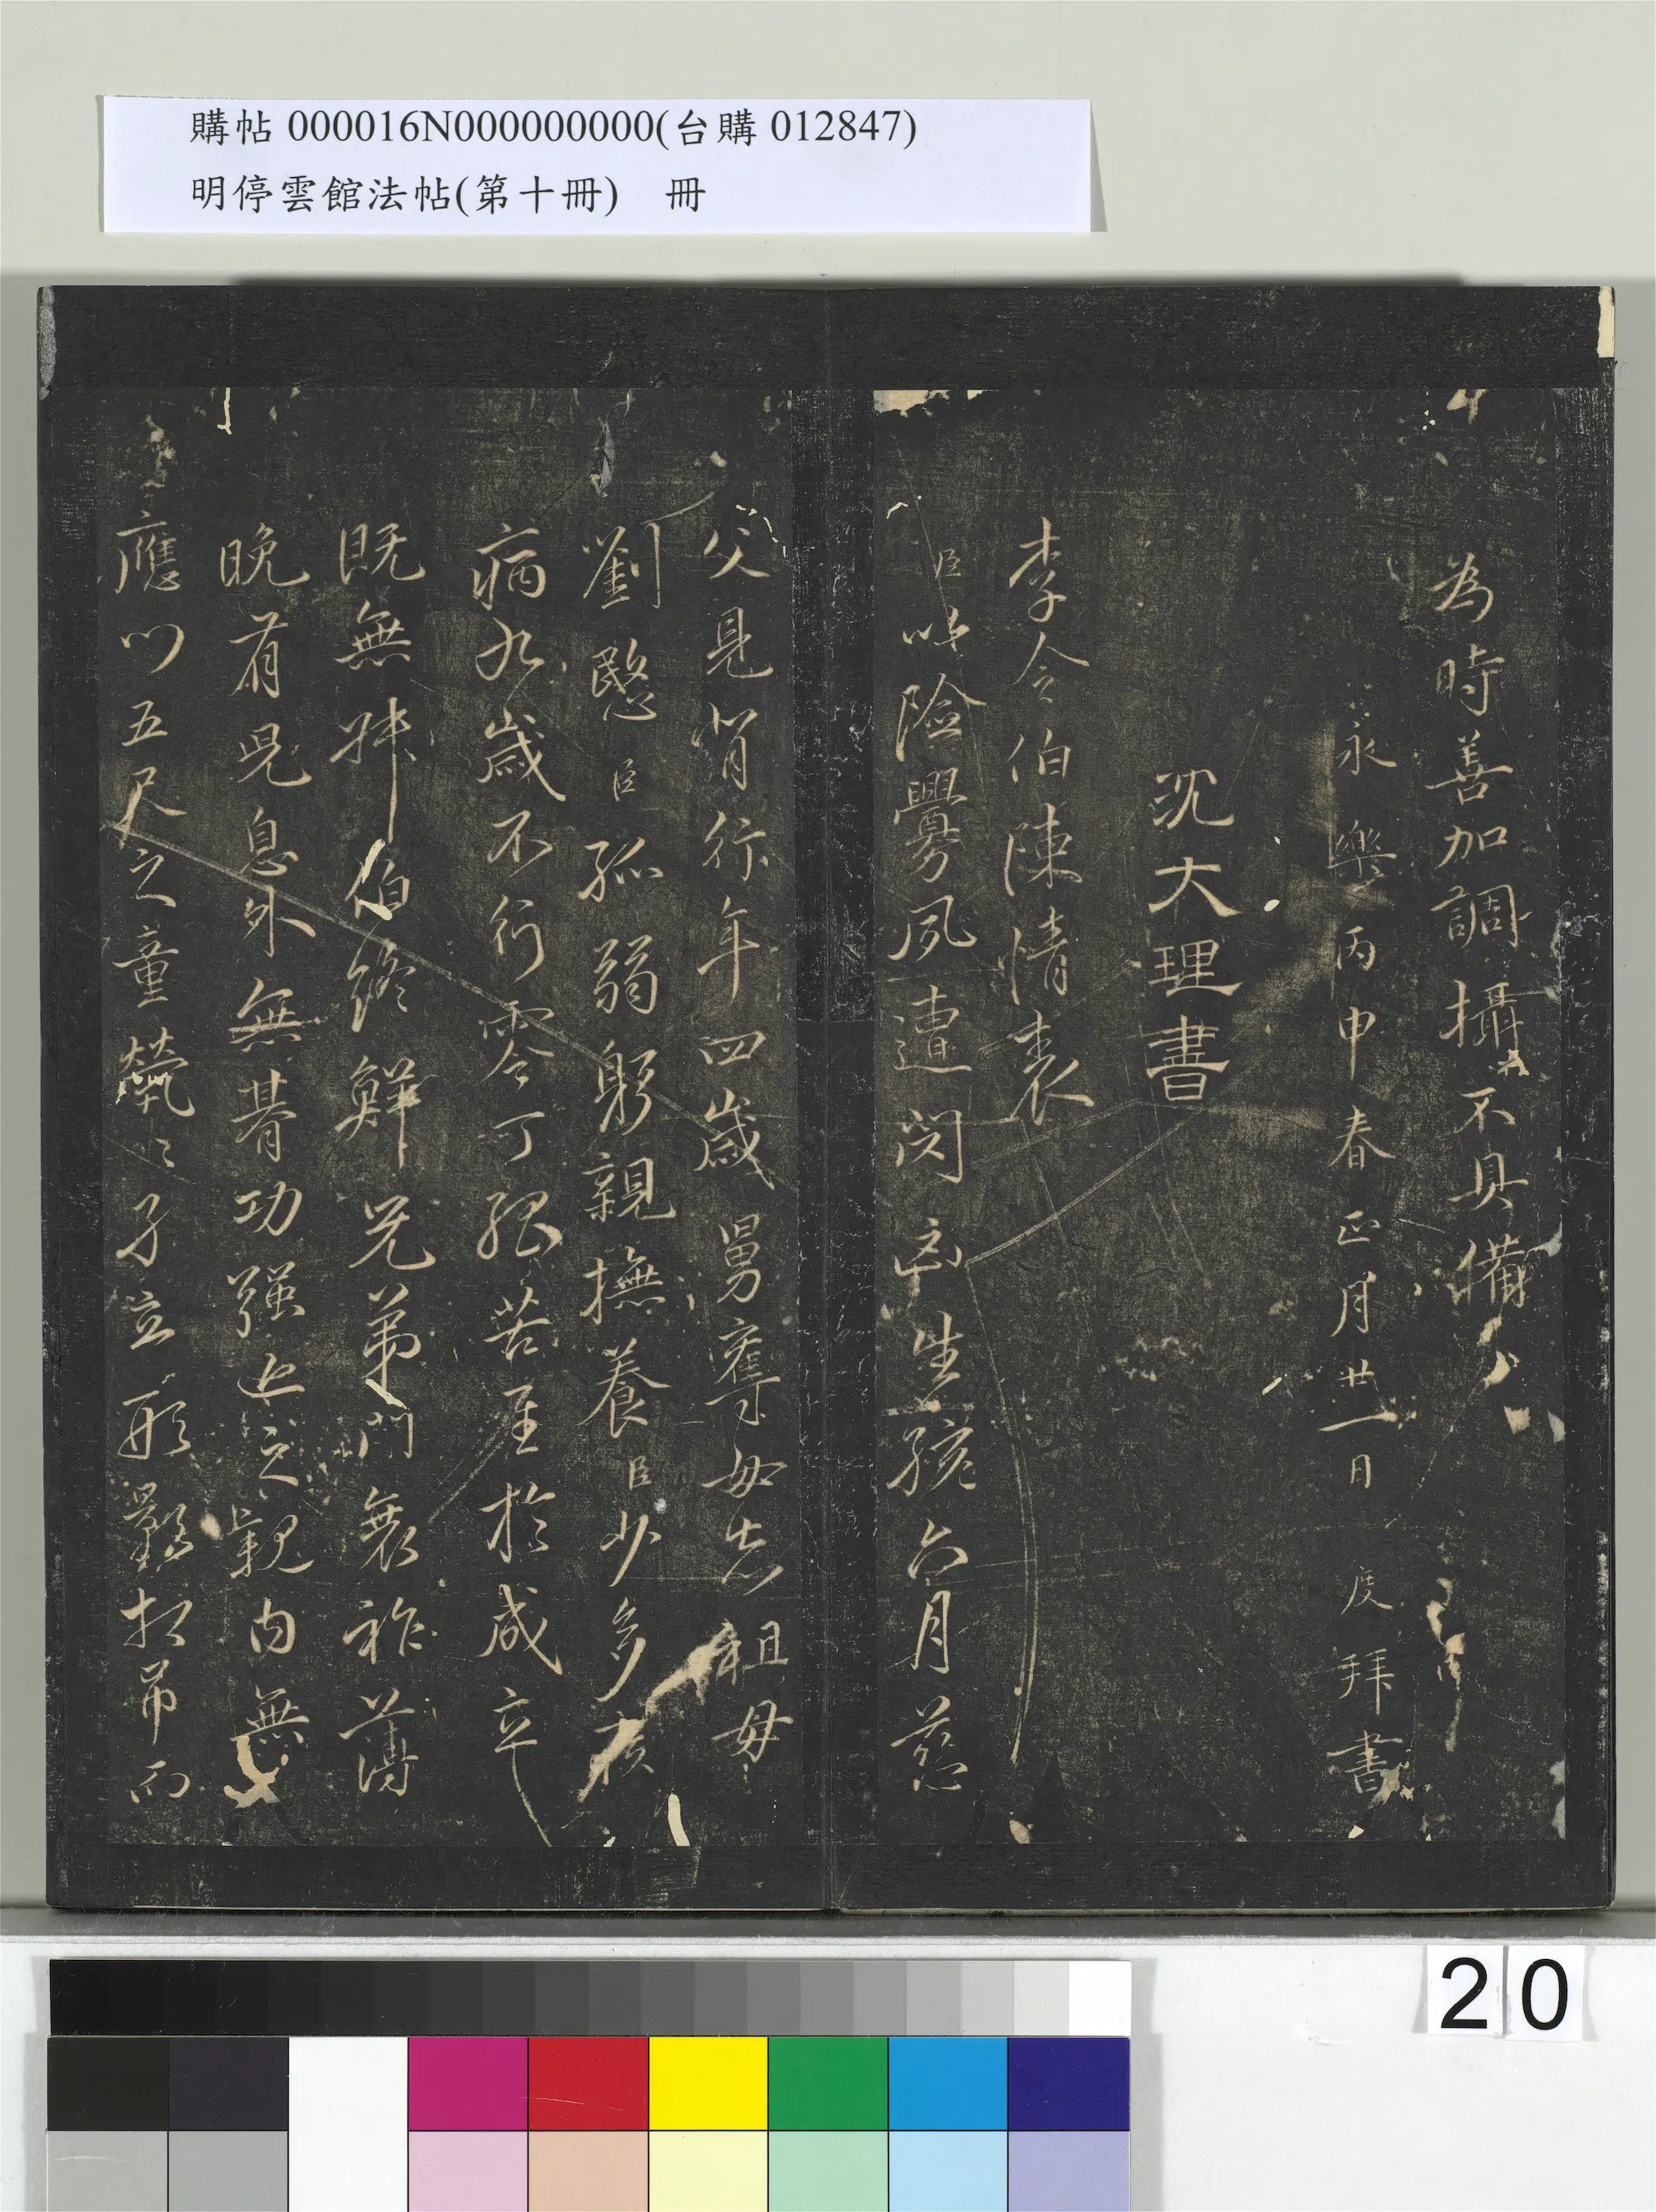 購帖 000016N000000000(台購 012847)
明停雲館法帖(第十冊)　冊
為時善加調攝不具備
永樂丙申春正月廿一日　度拜書
沈大理書
李令伯陳情表
臣以險釁夙遭閔凶生孩六月慈
父見背行年四歲舅奪母志祖母
劉愍臣孤弱躬親撫養臣少多疾
病九歲不行零丁孤苦至於成立
既無叔伯終鮮兄弟門衰祚薄
晚有兒息外無朞功强近之親內無
應門五尺之童煢〻孑立形影相弔而
20